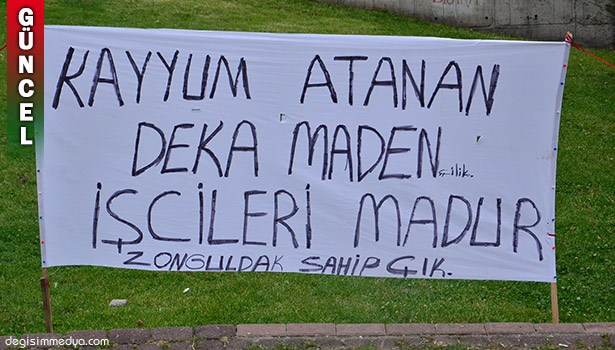 GÜNCEL
KAYYUM ATANAN
DEKA MADEN cilik.
İŞCİLERİ MADUR
ZONGULDAK SAHİP ÇIK.
degisimmedya.com